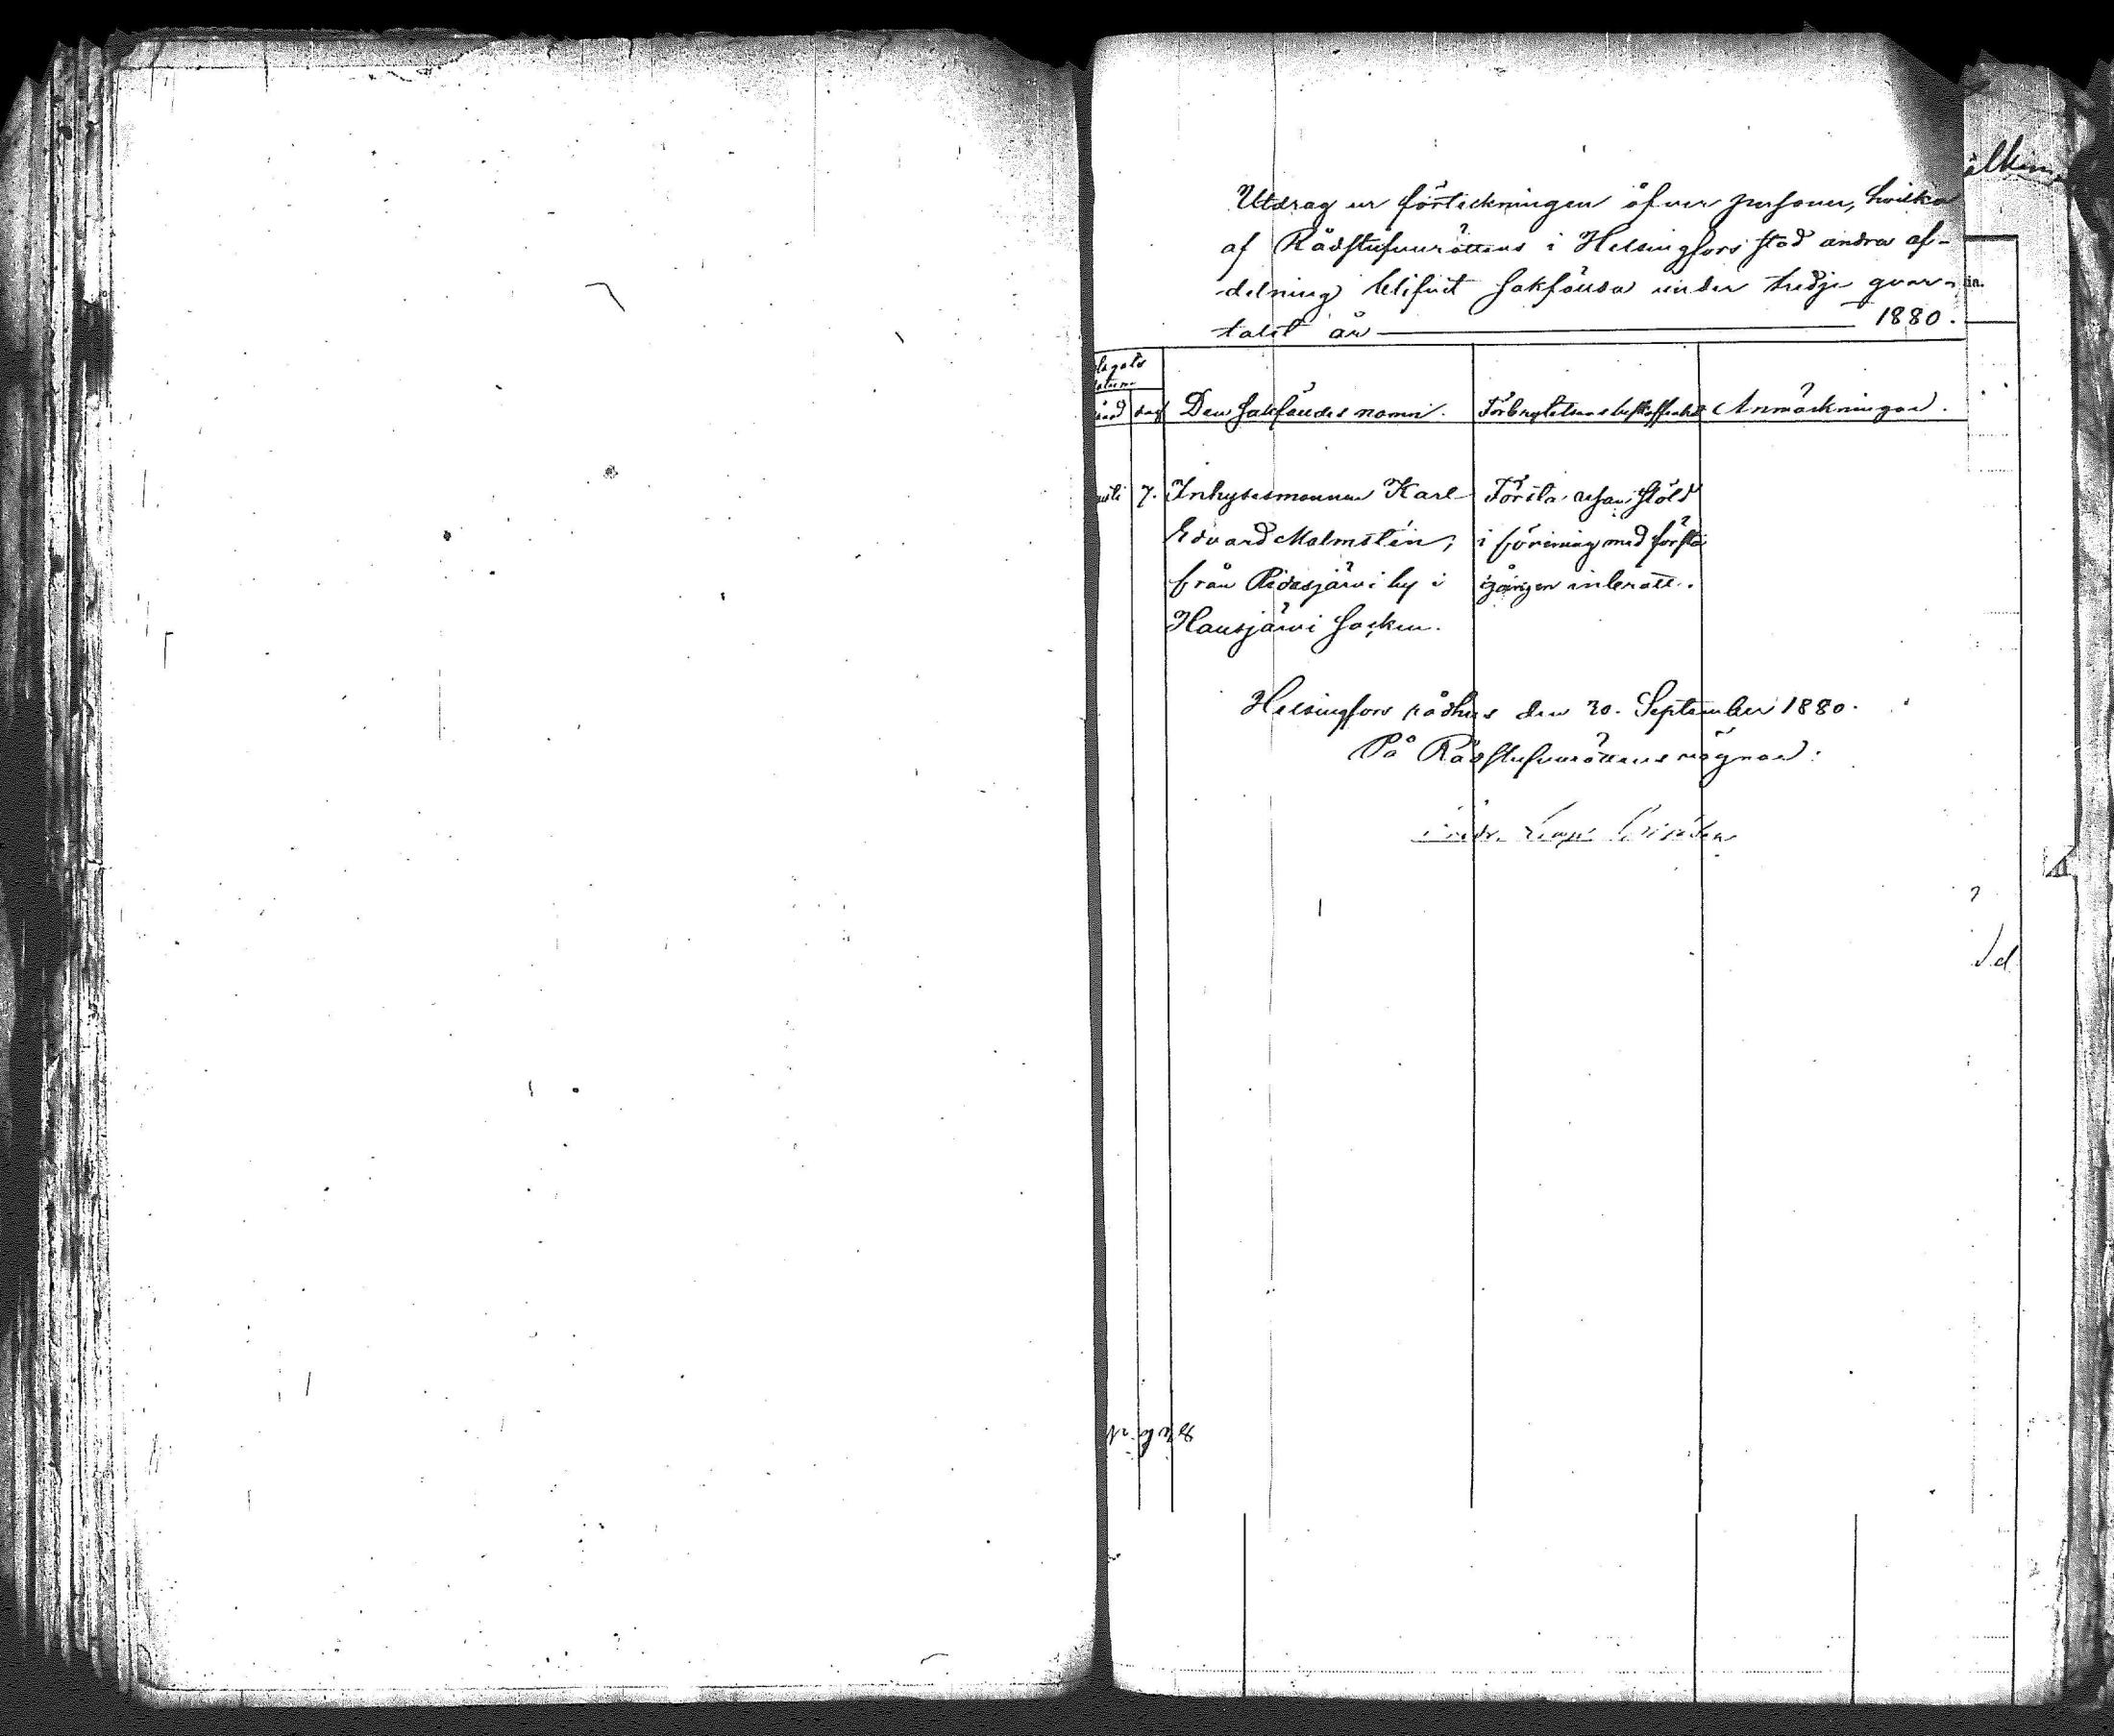 Utdrag ur förteckningen öfver personer, hvilka
af Rådstufvurättens i Helsingfors stad andra af-
delning blifvit sakfälda under tredje qvar-
talet år 1880.
Den sakfäldes namn. Förbrytelsens beskaffenhet Anmärkningar.
dag
7. Inhysesmannen Karl
Edvard Malmstén,
från Ridasjärvi by i
Hausjärvi Socken.
Första resan stöld
i förening med första
gången inbrott.
Helsingfors rådhus den 30. September 1880.
På Rådstufvurättens vägnar: